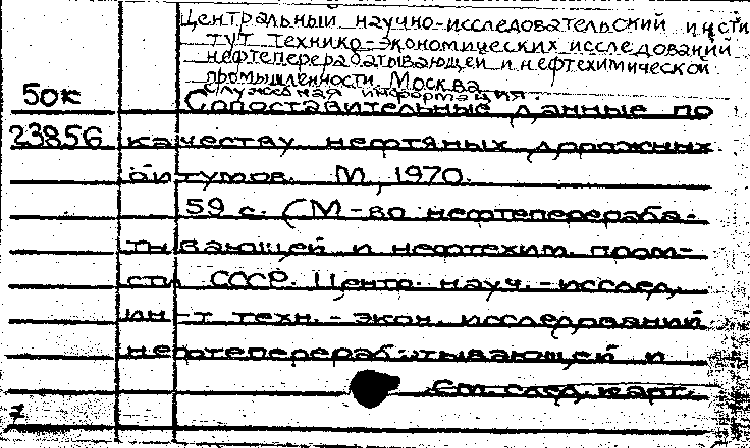 Центральный научно-исследовательский инсти
тут технико-экономических исследований
нефтеперерабатывающей и нефтехимической
промышленности. Москва
Служебная информация.
50к Сопоставительные данные по
23856 качеству нефтяных дорожных
битумов. М., 1970.
59 с. (М-во нефтеперераба-
тывающей и нефтехим. пром-
сти СССР. Центр. науч.-исслед.
ин-т техн.-экон. исследований
нефтеперерабатывающей и
См. след. карт.